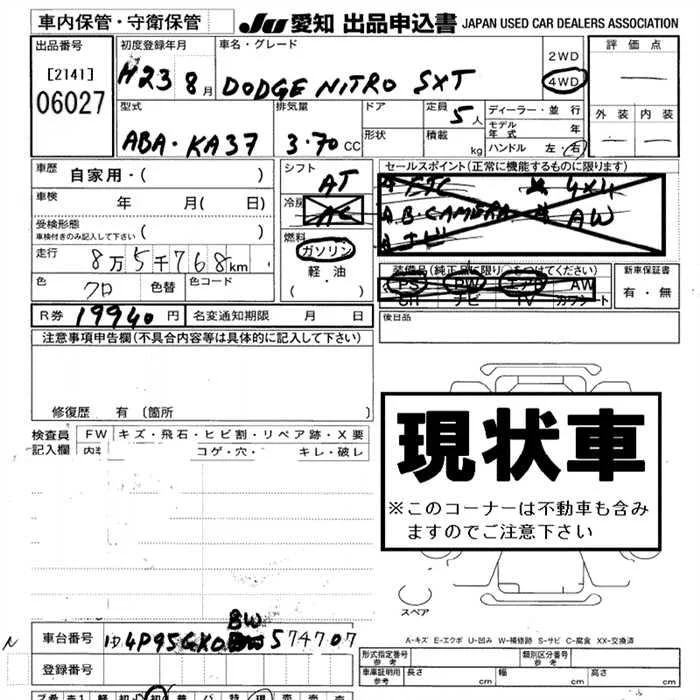 車内保管・守衛保管
JU 愛知 出品申込書 JAPAN USED CAR DEALERS ASSOCIATION
出品番号
[2141]
06027
初度登録年月
H23 8月
車名・グレード
DODGE NITRO SXT
2WD
4WD
評価点
外装 内装
型式
ABA・KA37
排気量
3.70 CC
ドア
形状
定員
5人
積載
kg
ディーラー・並行
モデル年式 年
ハンドル 左・右
車歴
自家用・( )
車検
年 月( 日)
受検形態
車検付きのみ記入して下さい
( )
走行
8万5千768km
色
クロ
色替
色コード
シフト
AT
冷房
AC
燃料
ガソリン
軽・油
( ・ )
セールスポイント(正常に機能するものに限ります)
4×4
A.B.CAMERA
AW
ナビ
装備品(純正品に限り をつけてください)
PS PW エアB AW
SR ナビ TV カワシート
新車保証書
有・無
R券 19940円
名変通知期限 月 日
後日品
注意事項申告欄(不具合内容等は具体的に記入して下さい)
修復歴 有 〔箇所 〕
検査員記入欄
FW キズ・飛石・ヒビ割・リペア跡・X要
内 コゲ・穴・ キレ・破レ
現状車
※このコーナーは不動車も含み
ますのでご注意下さい
スペア
A-キズ E-エクボ U-凹み W-補修跡 S-サビ C-腐食 XX-交換済
車台番号
BW
574707
登録番号
形式指定番号
参考
類別区分番号
参考
車庫証明用
参考
長さ
幅
高さ
cm